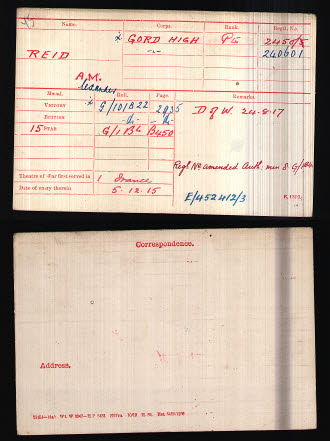 Name. Corps. Rank. Regtl. No.
x GORD HIGH Pte 2450/3
REID -"- 240601
A.M.
Medal. Roll. Page. Remarks.
VICTORY x G/101B22 2935 D of W. 24-8-17
BRITISH -do- -do-
15 STAR G/1 B2 B450
Regl No amended Auth.
Theatre of War first served in 1 France
Date of entry therein 5.12.15 E/452412/3 K. 1380.
Correspondence.
Address.